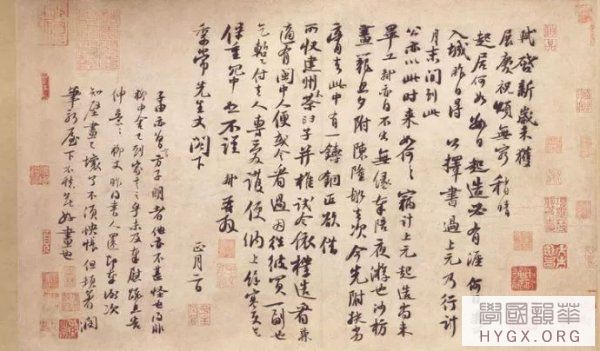 軾啓新歲未獲
展慶祝頌無窮稍晴
起居何如數日起造必有涯何日果可
入城昨日得公擇書過上元乃行計
月末間到此
公亦以此時來如何々々竊計上元起造尚未
畢工軾亦自不出無緣奉陪夜遊也沙枋
畫籠旦夕附陳隆船去次今先附扶劣
膏去此中有一鑄銅匠欲借
所收建州木茶臼子并椎試令依樣造看兼
適有閩中人便或令看過因往彼買一副也
乞暫付去人專愛護便納上餘寒更乞
保重冗中恕不謹軾再拜
季常先生丈閣下
正月二日
子由亦曾言方子明者他亦不甚怪也得非
柳中舍已到家言之乎未及奉慰疏且告
伸意々々柳丈昨得書人還即奉謝次
知壁畫已壞了不須怏悵但頓著潤
筆新屋下不愁無好畫也
學國韻華
HYGX.ORG